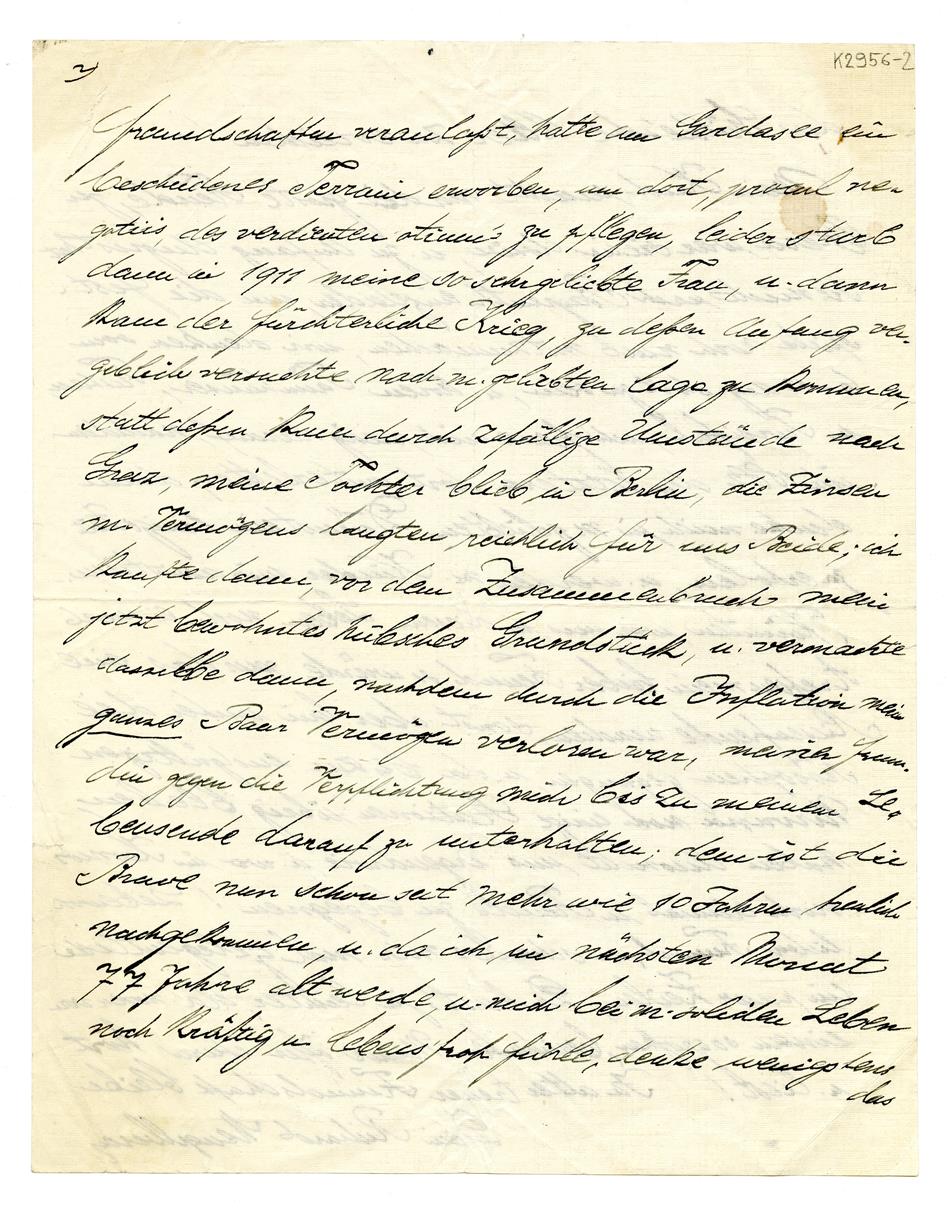 K2956-2
2)
freundschaften veranlaßt, hatte am Gardasee ein
bescheidenes Terrain erworben, um dort, procul ne-
gotiis, des verdienten otiums zu pflegen, leider starb
dann in 1911 meine so sehr geliebte Frau, u. dann
kam der fürchterliche Krieg, zu deßen Anfang ver-
geblich versuchte nach m. geliebten lago zu kommen,
statt deßen kam durch zufällige Umstände nach
Graz, meine Tochter blieb in Berlin, die Zinsen
m. Vermögens langten reichlich für uns Beide; ich
kaufte dann, vor dem Zusammenbruch mein
jetzt bewohntes hübsches Grundstück, u. vermachte
dasselbe dann, nachdem durch die Inflation mein
ganzes Baar Vermögen verloren war, meiner Freun-
din gegen die Verpflichtung mich bis zu meinem Le-
bensende darauf zu unterhalten; dem ist die
Brave nun schon seit mehr wie 10 Jahren treulich
nachgekommen, u. da ich im nächsten Monat
77 Jahre alt werde, u. mich bei m. soliden Leben
noch kräftig u. lebensfroh fühle, denke wenigstens
das